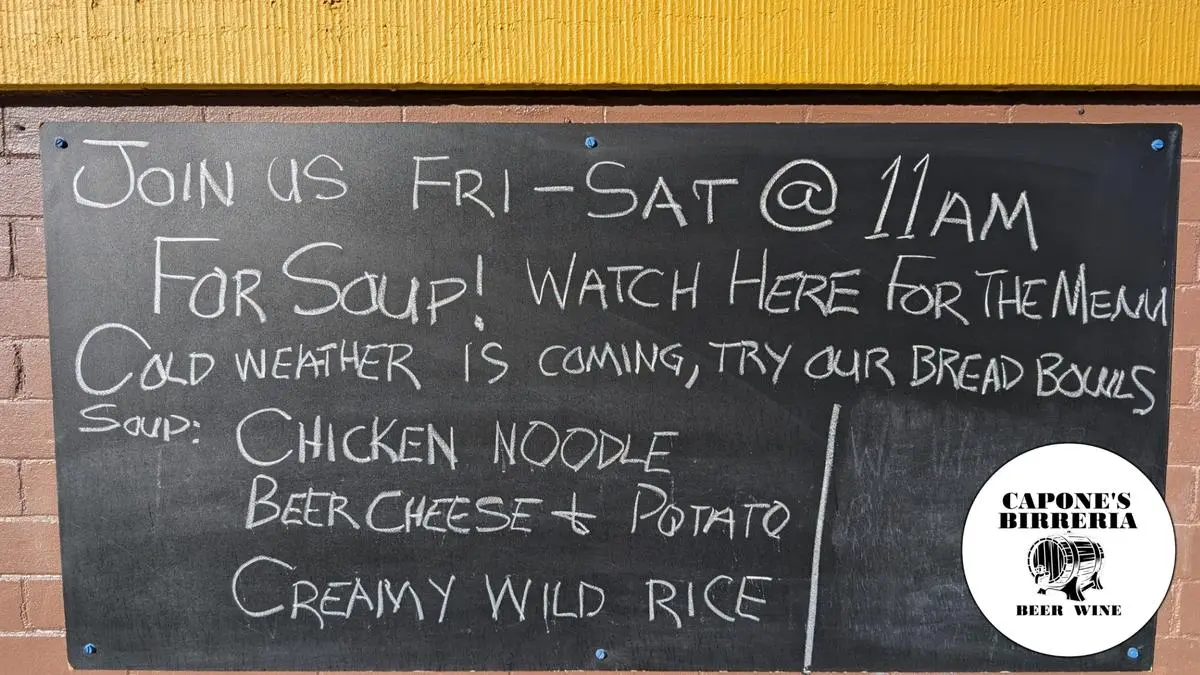 JOIN US FRI-SAT @ 11AM
FOR SOUP! WATCH HERE FOR THE MENU
COLD WEATHER IS COMING, TRY OUR BREAD BOWLS
SOUP: CHICKEN NOODLE
BEER CHEESE & POTATO
CREAMY WILD RICE
CAPONE'S
BIRRERIA
BEER WINE